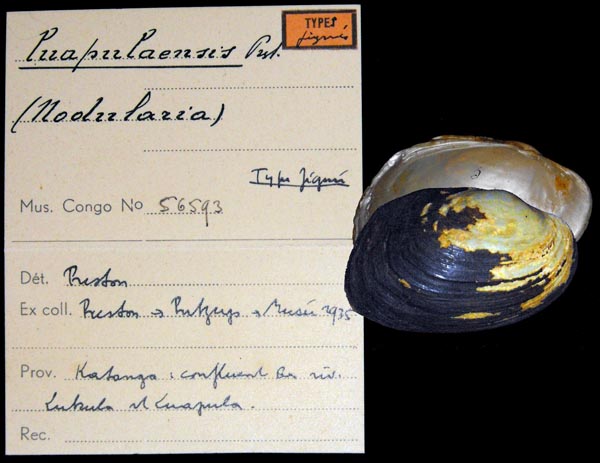 TYPES
figurés
Luapulaensis Prst.
(Nodularia)
Type figuré
Mus. Congo No 56593
Dét. Preston
Ex coll. Preston → Putzeys → Musée 1935
Prov. Katanga : confluent des riv.
Lukula et Luapula.
Rec.